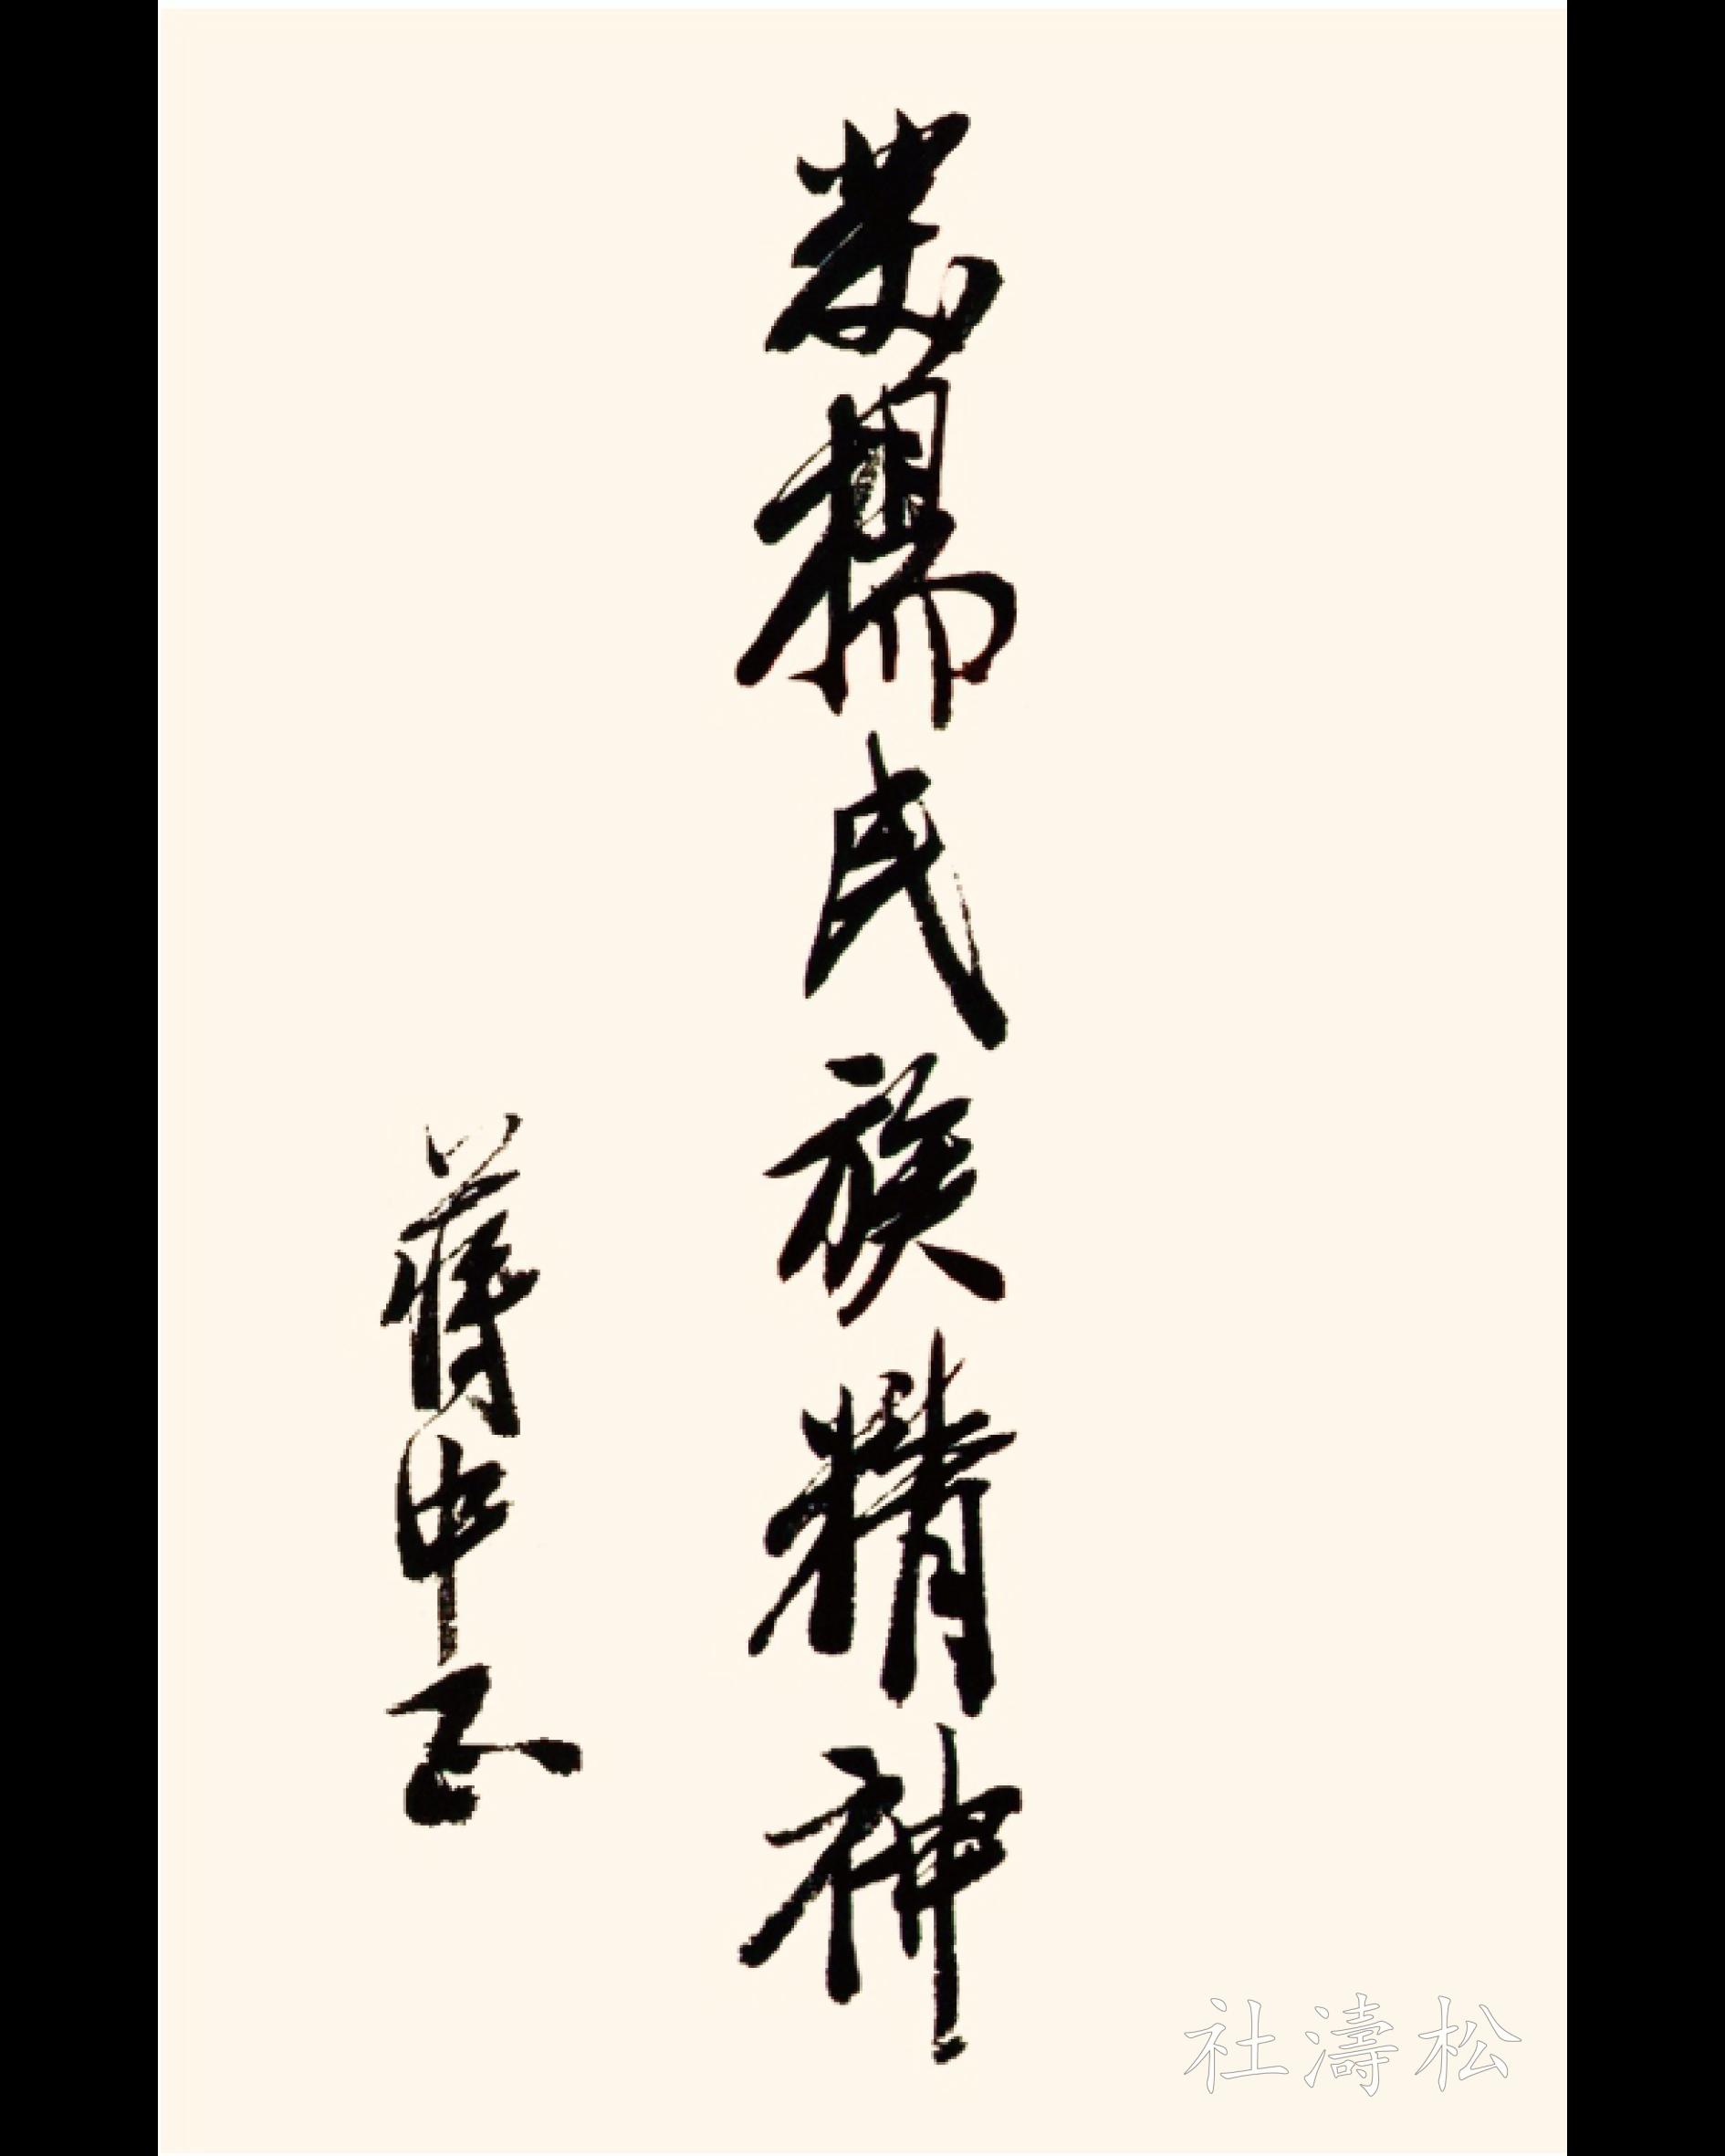 發揚民族精神
蔣中正
松濤社